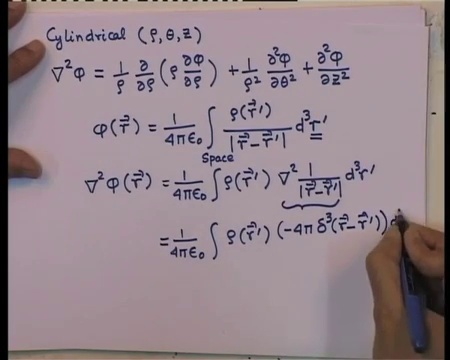 Cylindrical (ρ, θ, z)
∇²φ = 1/ρ ∂/∂ρ (ρ ∂φ/∂ρ) + 1/ρ² ∂²φ/∂θ² + ∂²φ/∂z²
φ(r⃗) = 1/4πε₀ ∫ ρ(r⃗′)/|r⃗−r⃗′| d³r′
Space
∇²φ(r⃗) = 1/4πε₀ ∫ ρ(r⃗′) ∇² 1/|r⃗−r⃗′| d³r′
= 1/4πε₀ ∫ ρ(r⃗′) (−4π δ³(r⃗−r⃗′)) d